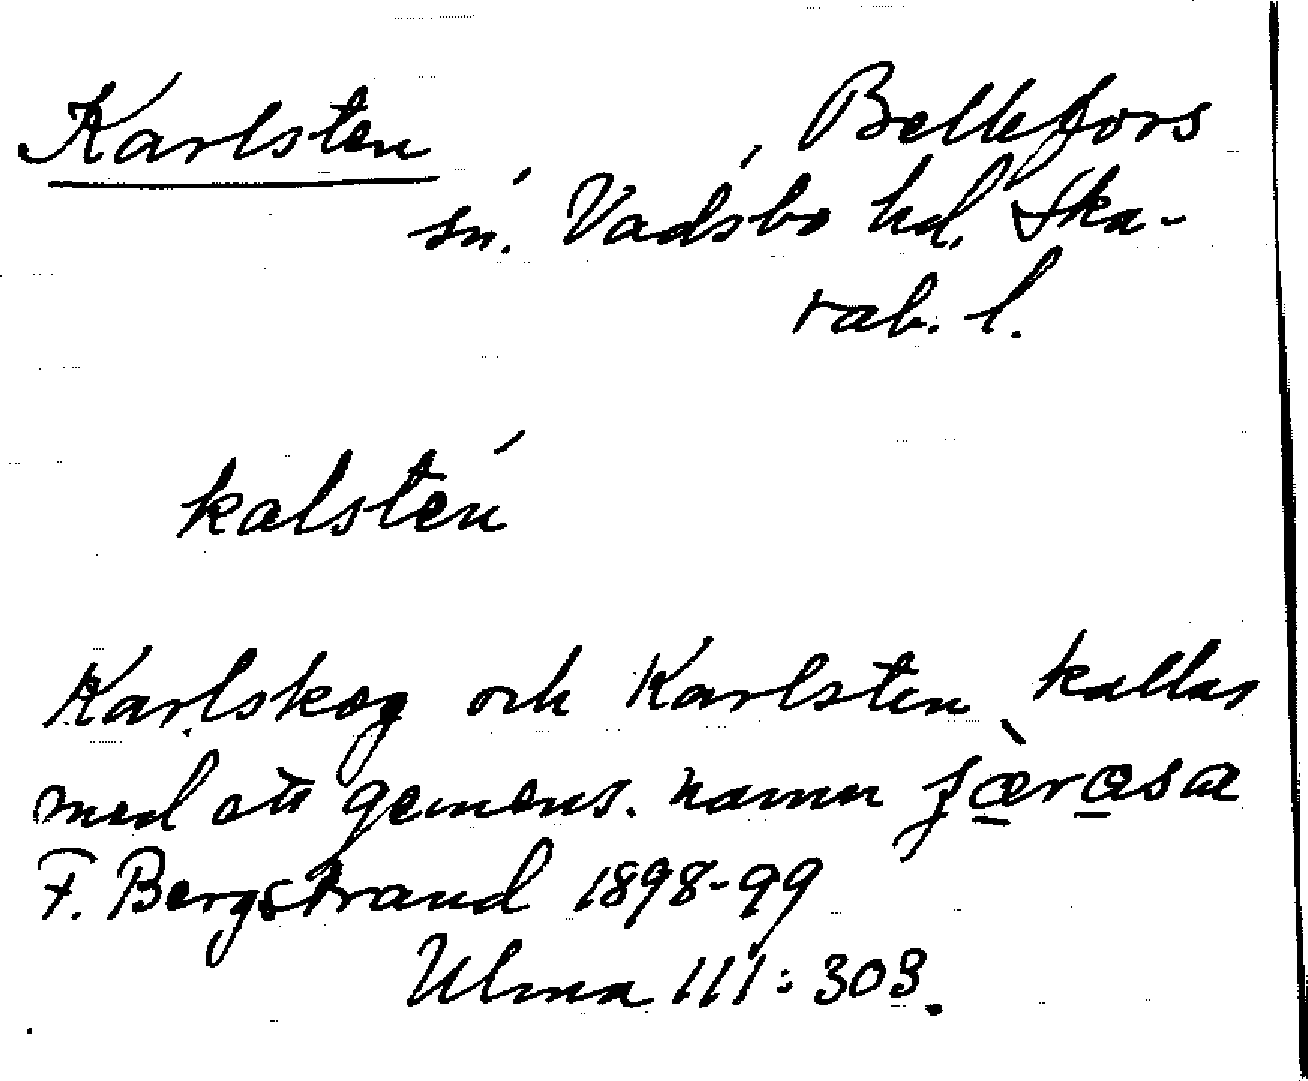 Karlsten , Bellefors
sn. Vadsbo hd. Ska-
rab. l.
kalsten
Karlskog och Karlsten kallas
med ett gemens. namn
F. Bergstrand 1898-99
Ulma 111:303.